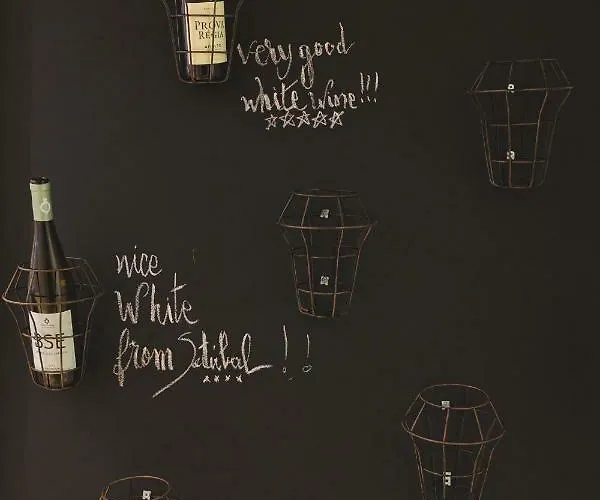 PROVA
RÉGIA
very good
white wine!!!
nice
White
from Setúbal!!
BSE